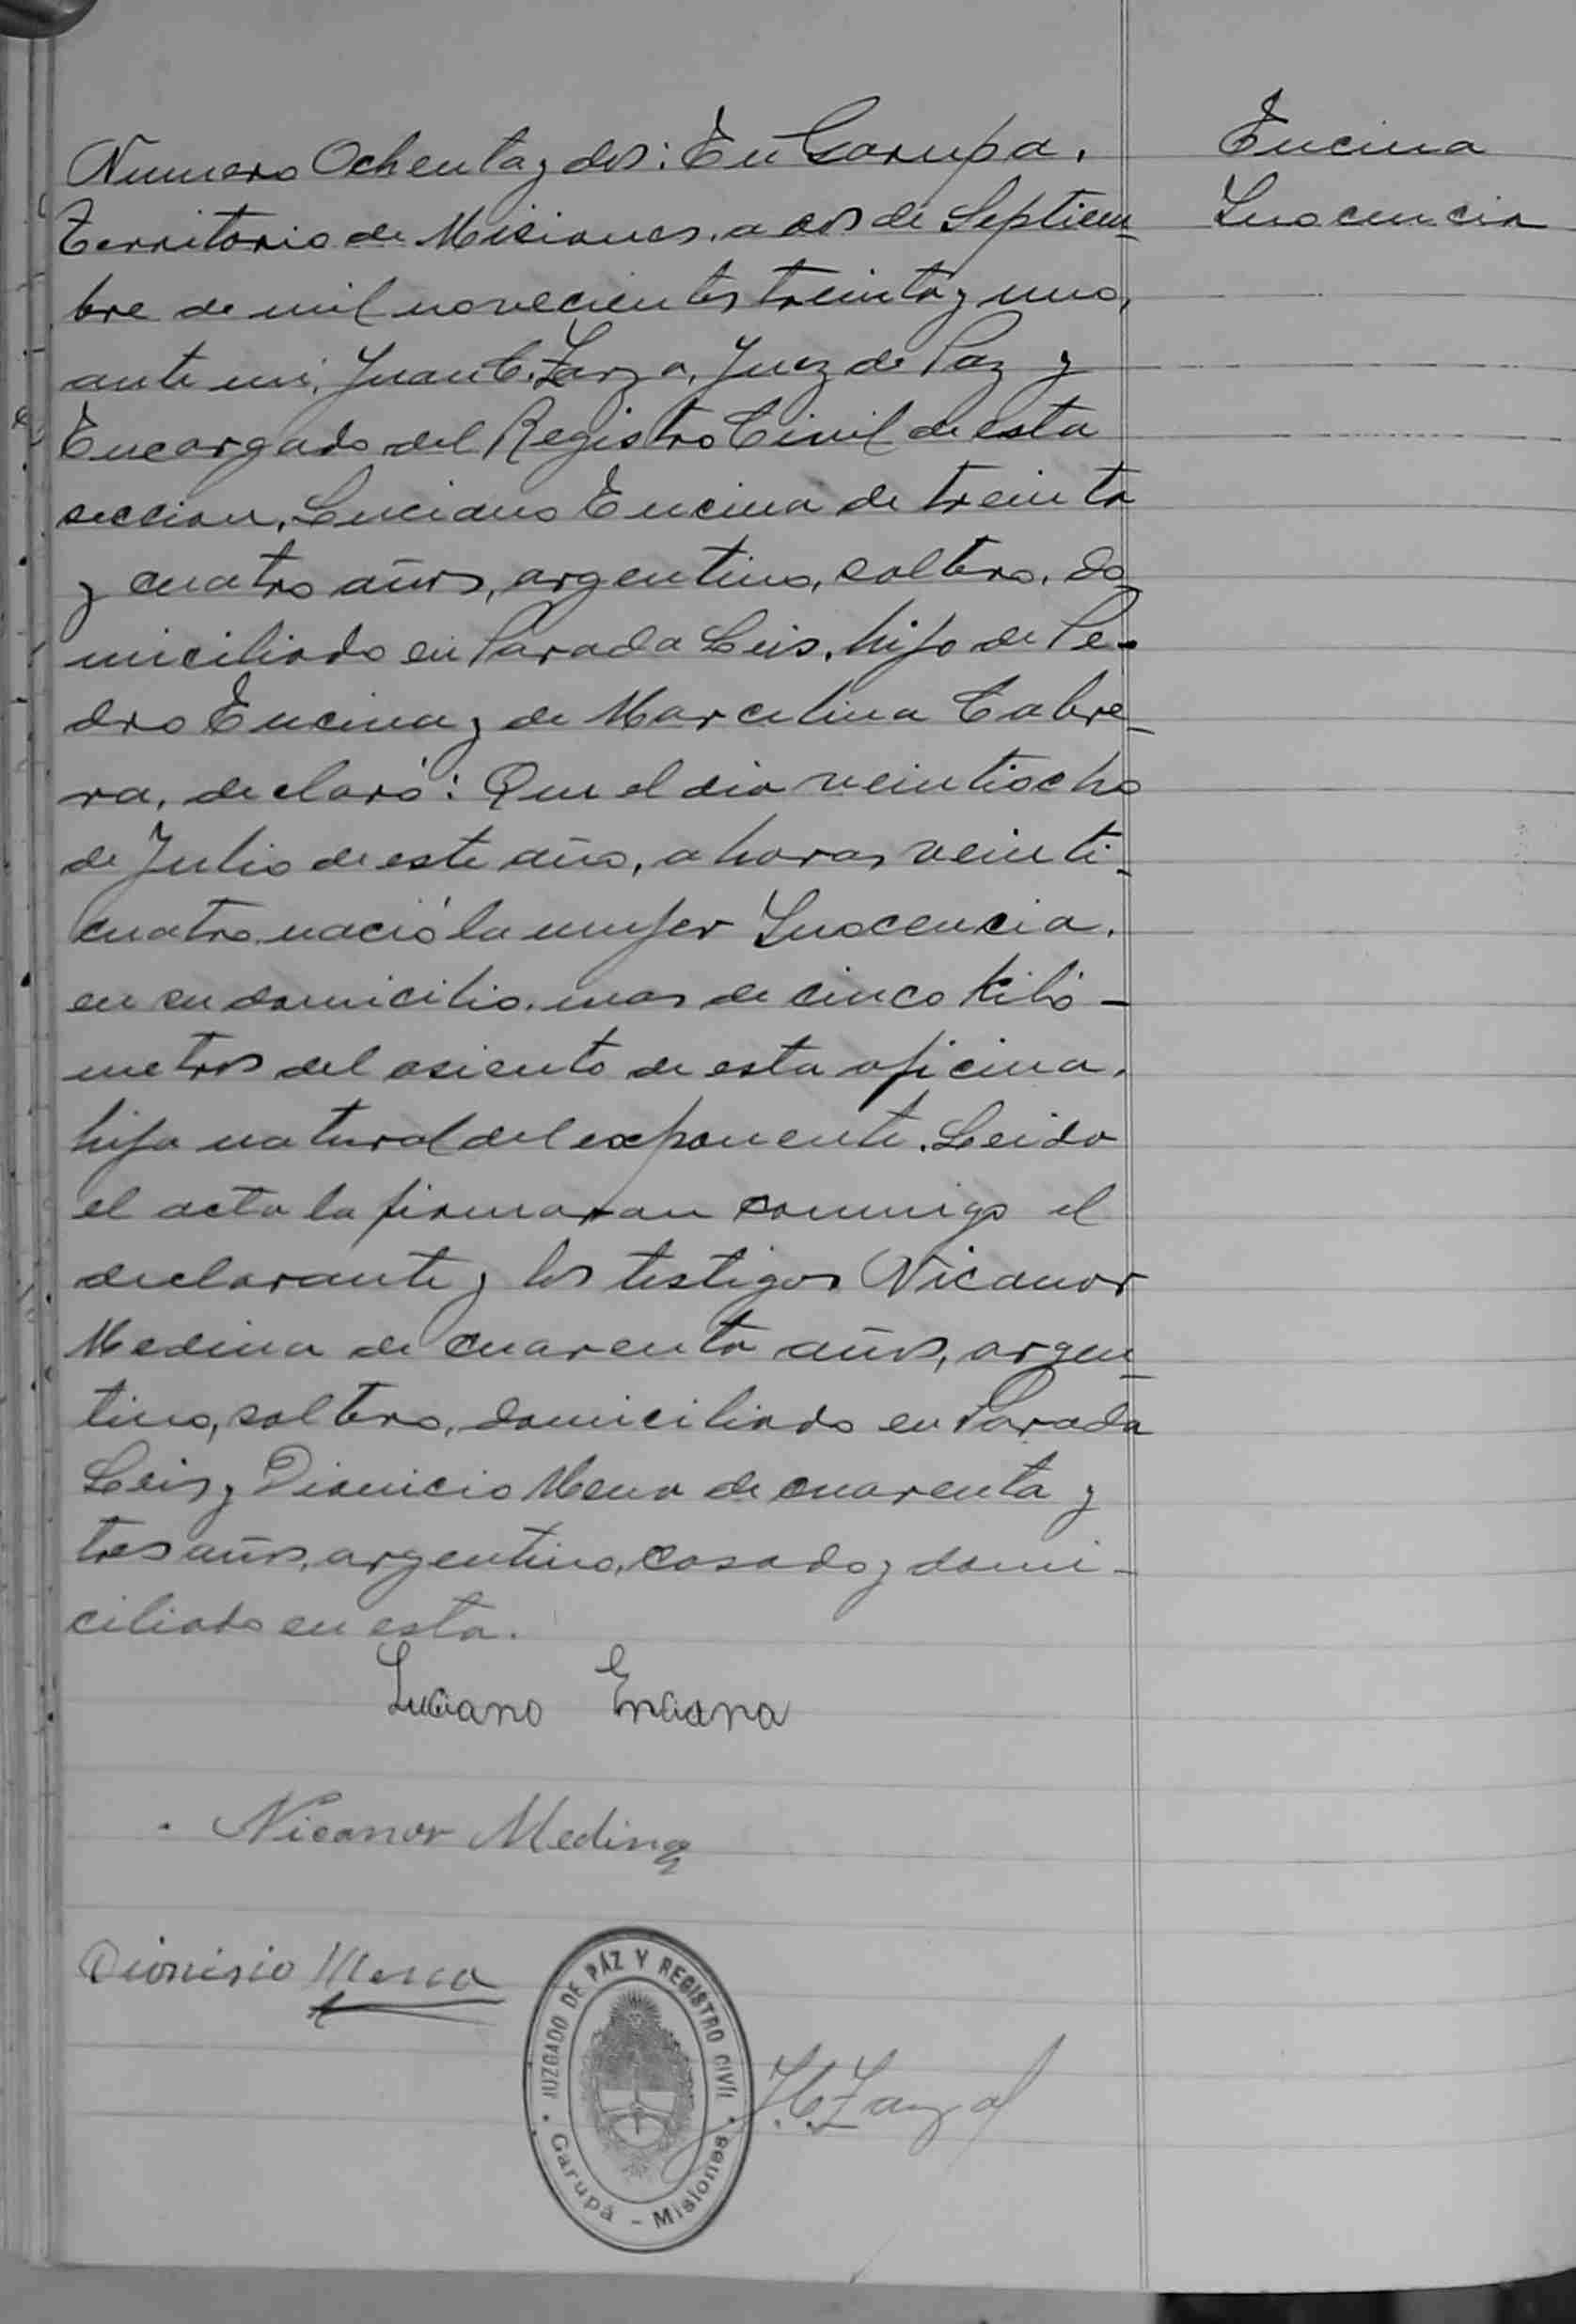 Numero Ochenta y dos: En Garupa,
Territorio de Misiones, a dos de Septiem-
bre de mil novecientos treinta y uno,
ante mi, Juan C. Zarza, Juez de Paz y
Encargado del Registro Civil de esta
seccion, Luciano Encina de treinta
y cuatro años, argentino, soltero, do-
miciliado en Parada Leis, hijo de Pe-
dro Encina y de Marcelina Cabre-
ra, declaró: Que el dia veintiocho
de Julio de este año, a horas veinti-
cuatro nació la mujer Inocencia,
en su domicilio, mas de cinco kiló-
metros del asiento de esta oficina,
hija natural del exponente. Leida
el acta la firmaran conmigo el
declarante y los testigos Nicanor
Medina de cuarenta años, argen-
tino, soltero, domiciliado en Parada
Leis y Dionicio Mena de cuarenta y
tres años, argentino, casado y domi-
ciliado en esta.
Encina
Inocencia
Luciano Encina
Nicanor Medina
Dionisio Mena
JUZGADO DE PAZ Y REGISTRO CIVIL
Garupá - Misiones
J.C. Zarza